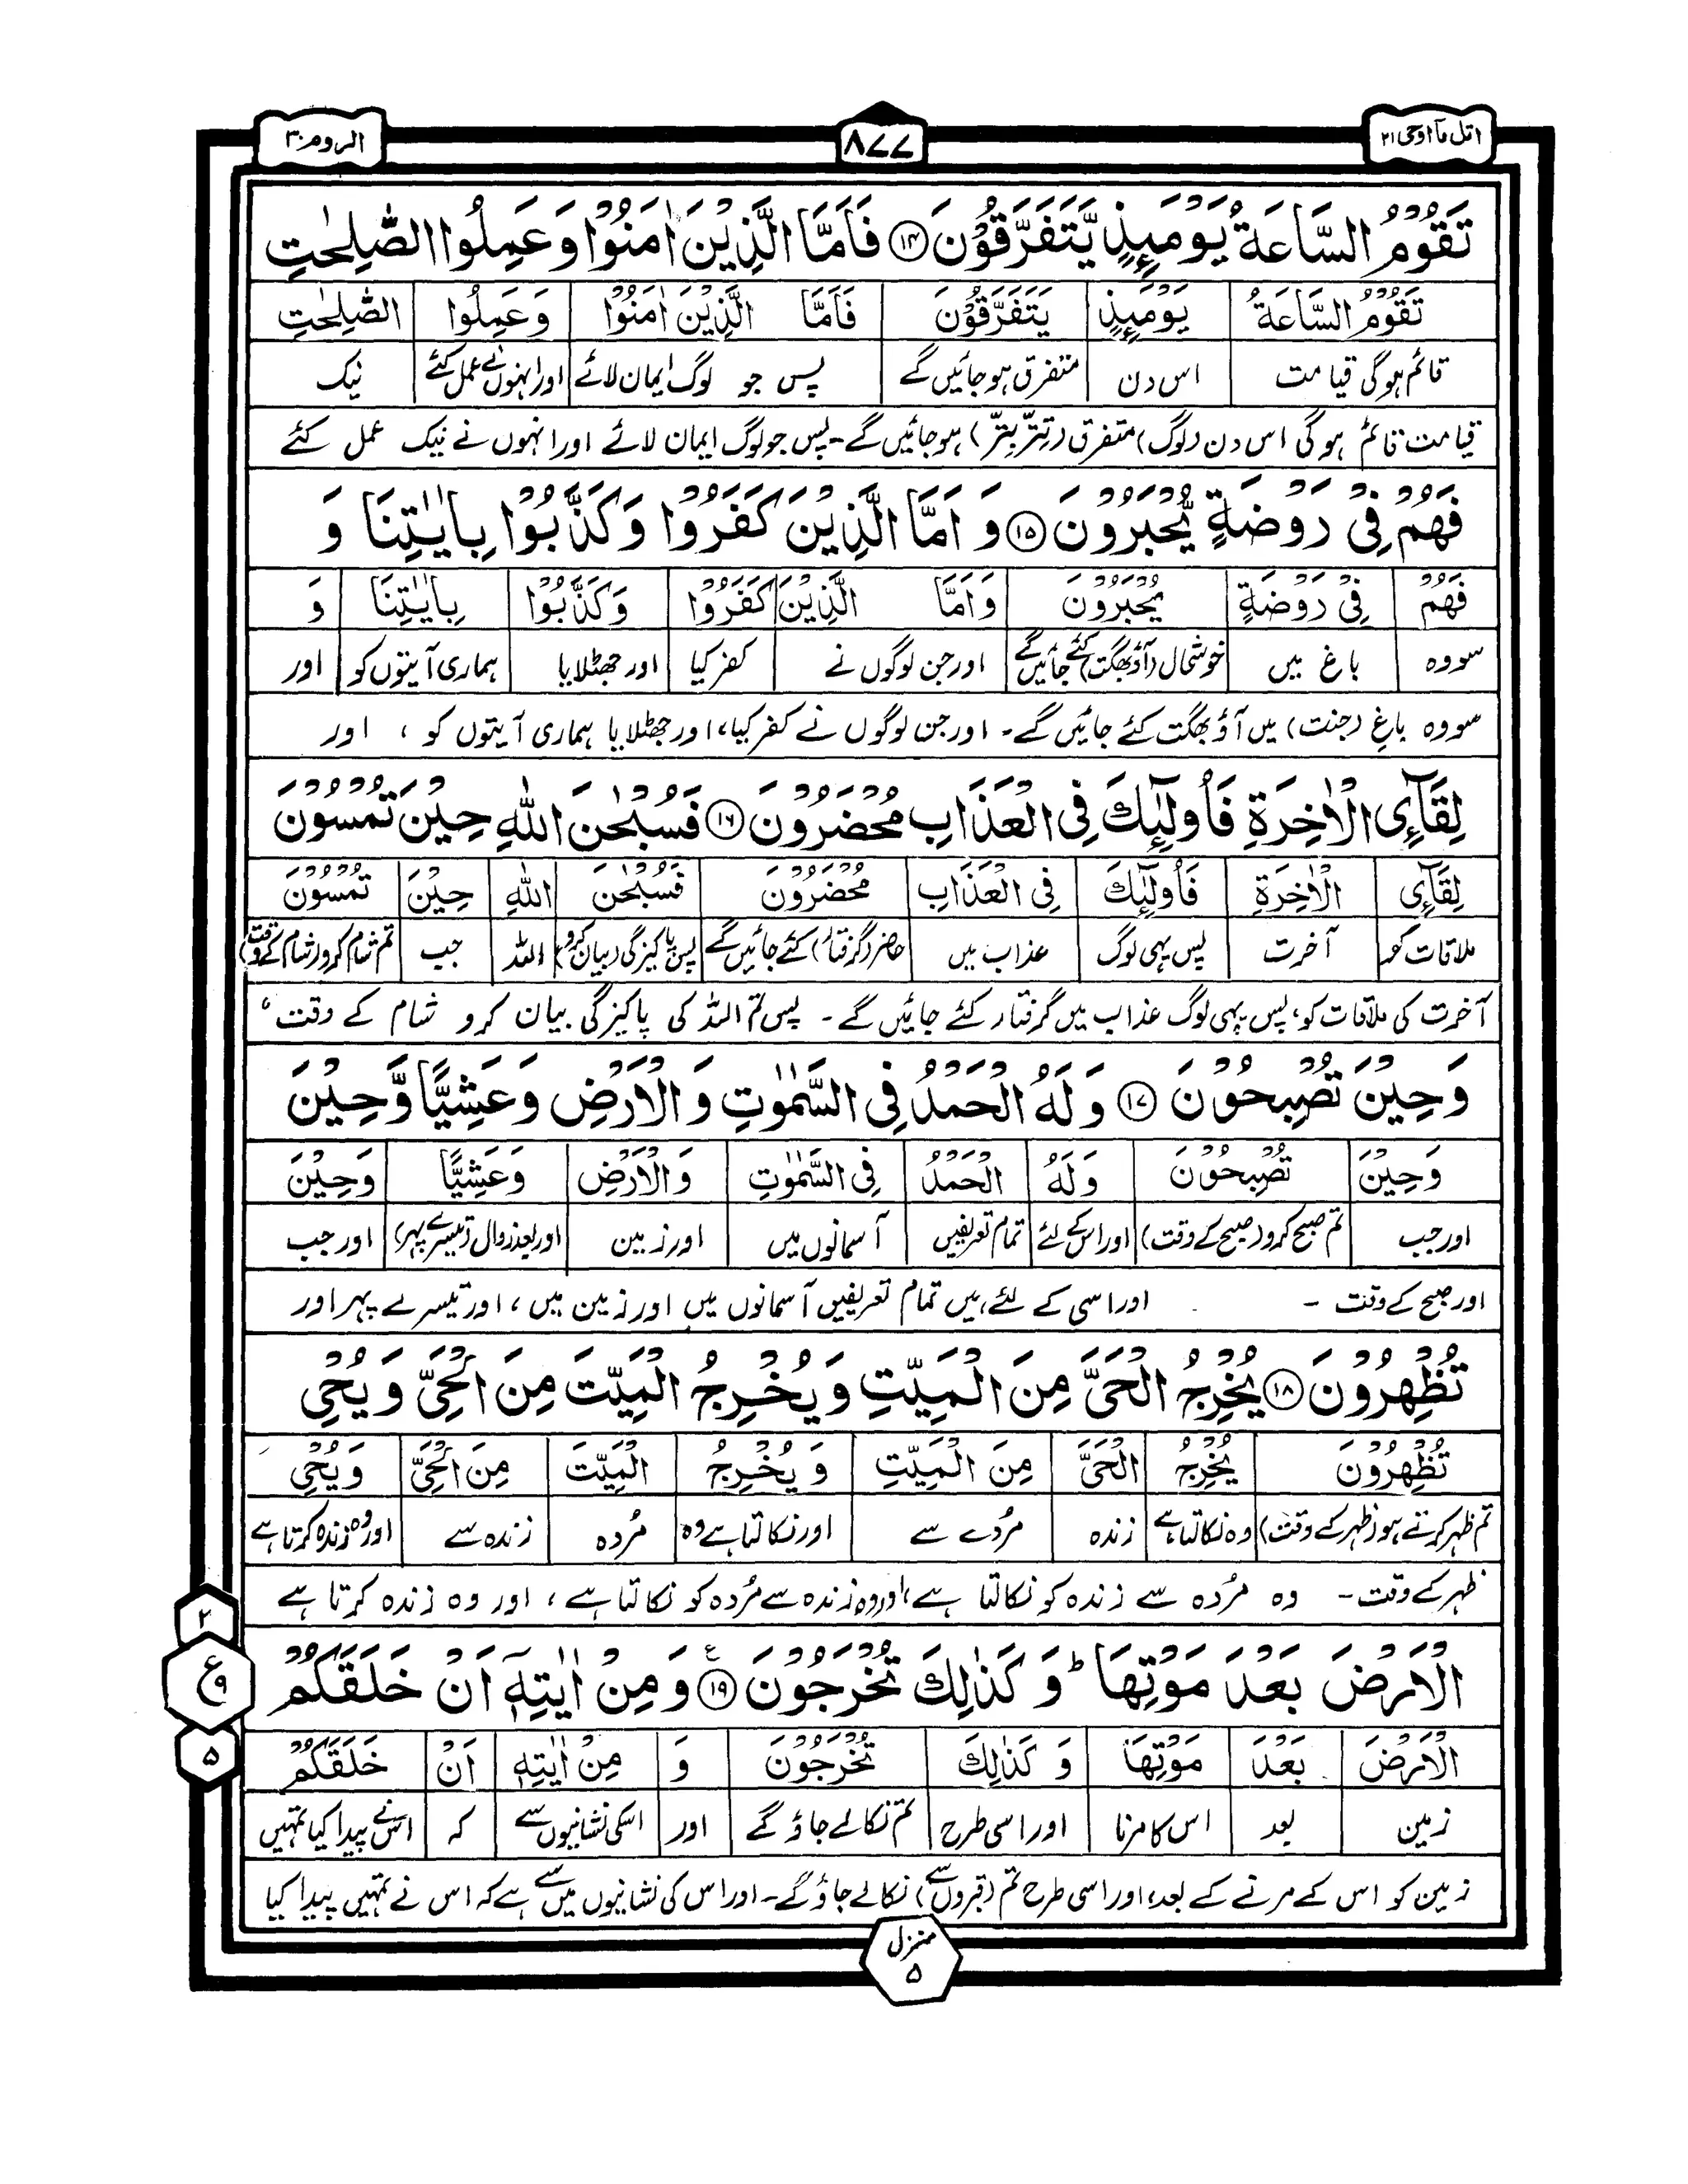 اتل مآ اوحی ۲۱
۸۷۷
الروم ۳۰
تَقُوْمُ السَّاعَةُ يَوْمَئِذٍ يَّتَفَرَّقُوْنَ ⑭ فَاَمَّا الَّذِيْنَ اٰمَنُوْا وَعَمِلُوا الصّٰلِحٰتِ
تَقُوْمُ السَّاعَةُ يَوْمَئِذٍ يَتَفَرَّقُوْنَ فَاَمَّا الَّذِيْنَ اٰمَنُوْا وَعَمِلُوا الصّٰلِحٰتِ
قائم ہوگی قیامت اس دن متفرق ہو جائیں گے پس جو لوگ ایمان لائے اور انہوں نے عمل کئے نیک
قیامت قائم ہو گی اس دن (لوگ) متفرق (تتر بتر) ہو جائیں گے۔ پس جو لوگ ایمان لائے اور انہوں نے نیک عمل کئے
فَهُمْ فِيْ رَوْضَةٍ يُّحْبَرُوْنَ ⑮ وَ اَمَّا الَّذِيْنَ كَفَرُوْا وَكَذَّبُوْا بِاٰيٰتِنَا وَ
فَهُمْ فِيْ رَوْضَةٍ يُحْبَرُوْنَ وَاَمَّا الَّذِيْنَ كَفَرُوْا وَكَذَّبُوْا بِاٰيٰتِنَا وَ
سو وہ باغ میں خوشحال (آؤ بھگت) کئے جائیں گے اور جن لوگوں نے کفر کیا اور جھٹلایا ہماری آیتوں کو اور
سو وہ باغ (جنت) میں آؤ بھگت کئے جائیں گے۔ اور جن لوگوں نے کفر کیا، اور جھٹلایا ہماری آیتوں کو ، اور
لِقَآئِ الْاٰخِرَةِ فَاُولٰٓئِكَ فِي الْعَذَابِ مُحْضَرُوْنَ ⑯ فَسُبْحٰنَ اللّٰهِ حِيْنَ تُمْسُوْنَ
لِقَآئِ الْاٰخِرَةِ فَاُولٰٓئِكَ فِي الْعَذَابِ مُحْضَرُوْنَ فَسُبْحٰنَ اللّٰهِ حِيْنَ تُمْسُوْنَ
ملاقات کو آخرت پس یہی لوگ عذاب میں حاضر (گرفتار) کئے جائیں گے پس پاکیزگی (بیان کرو) اللہ جب تم شام کرو (شام کے وقت)
آخرت کی ملاقات کو، پس یہی لوگ عذاب میں گرفتار کئے جائیں گے ۔ پس تم اللہ کی پاکیزگی بیان کرو شام کے وقت
وَحِيْنَ تُصْبِحُوْنَ ⑰ وَلَهُ الْحَمْدُ فِي السَّمٰوٰتِ وَالْاَرْضِ وَعَشِيًّا وَّحِيْنَ
وَحِيْنَ تُصْبِحُوْنَ وَلَهُ الْحَمْدُ فِي السَّمٰوٰتِ وَالْاَرْضِ وَعَشِيًّا وَحِيْنَ
اور جب تم صبح کرو (صبح کے وقت) اور اس کے لئے تمام تعریفیں آسمانوں میں اور زمین اور بعد زوال (تیسرے پہر) اور جب
اور صبح کے وقت ۔ اور اسی کے لئے ہیں تمام تعریفیں آسمانوں میں اور زمین میں، اور تیسرے پہر اور
تُظْهِرُوْنَ ⑱ يُخْرِجُ الْحَيَّ مِنَ الْمَيِّتِ وَيُخْرِجُ الْمَيِّتَ مِنَ الْحَيِّ وَيُحْيِ
تُظْهِرُوْنَ يُخْرِجُ الْحَيَّ مِنَ الْمَيِّتِ وَيُخْرِجُ الْمَيِّتَ مِنَ الْحَيِّ وَيُحْيِ
تم ظہر کرتے ہو (ظہر کے وقت) وہ نکالتا ہے زندہ مُردے سے اور نکالتا ہے وہ مُردہ زندہ سے اور وہ زندہ کرتا ہے
ظہر کے وقت ۔ وہ مُردہ سے زندہ کو نکالتا ہے، اور وہ زندہ سے مُردہ کو نکالتا ہے ، اور وہ زندہ کرتا ہے
الْاَرْضَ بَعْدَ مَوْتِهَا ؕ وَ كَذٰلِكَ تُخْرَجُوْنَ ⑲ ع وَ مِنْ اٰيٰتِهٖٓ اَنْ خَلَقَكُمْ
الْاَرْضَ بَعْدَ مَوْتِهَا وَ كَذٰلِكَ تُخْرَجُوْنَ وَ مِنْ اٰيٰتِهٖٓ اَنْ خَلَقَكُمْ
زمین بعد اس کا مرنا اور اسی طرح تم نکالے جاؤ گے اور اسکی نشانیوں سے کہ اس نے پیدا کیا تمہیں
زمین کو اس کے مرنے کے بعد، اور اسی طرح تم (قبروں سے) نکالے جاؤ گے۔ اور اس کی نشانیوں میں سے ہے کہ اس نے تمہیں پیدا کیا
۲
ع ۹
۵
منزل
۵